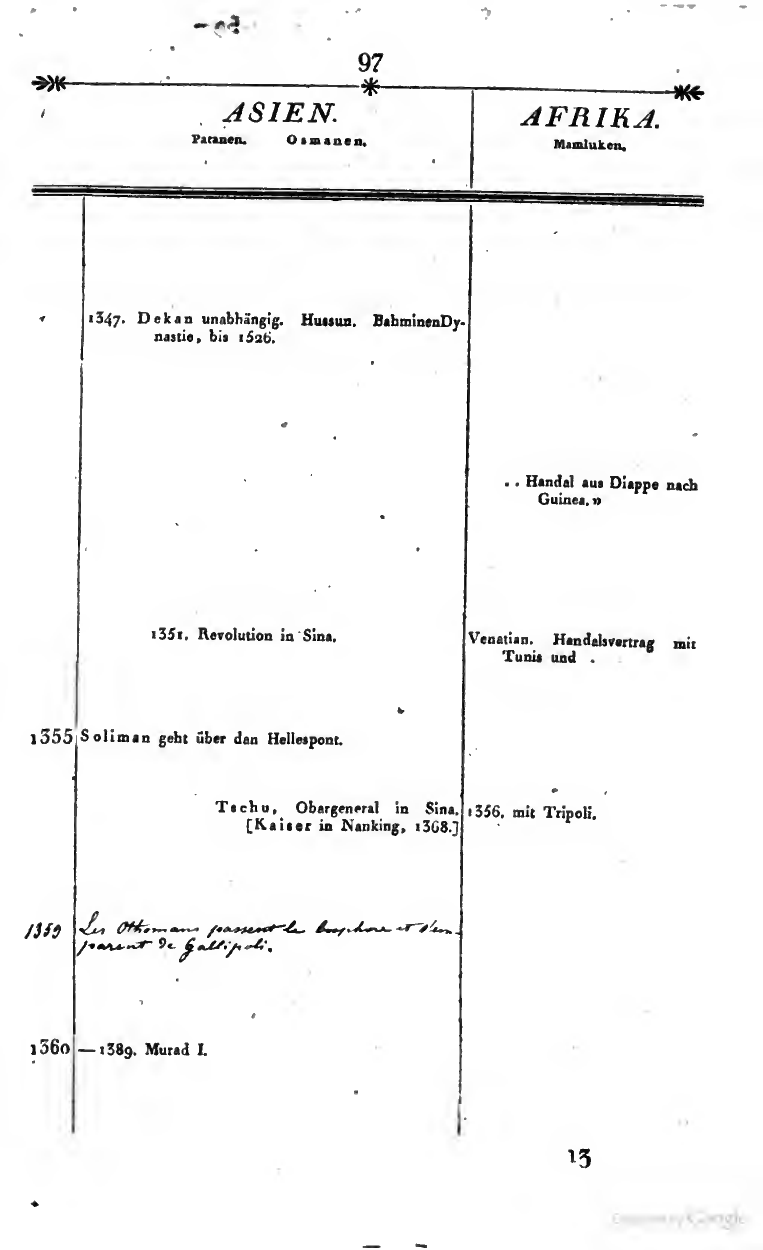 97
ASIEN.
Patanen. Osmanen.
AFRIKA.
Mamluken.
1347. Dekan unabhängig. Hussun. BahminenDy-
nastie, bis 1526.
. . Handal aus Diappe nach
Guinea. »
1351. Revolution in Sina.
Venatian. Handalsvertrag mit
Tunis und .
1355 Soliman geht über dan Hellespont.
Tschu, Obargeneral in Sina.
[Kaiser in Nanking, 1368.]
1356. mit Tripoli.
1359 Les Othomans passent le bosphore et s'em-
parent de Gallipoli.
1360 — 1389. Murad I.
13
Google